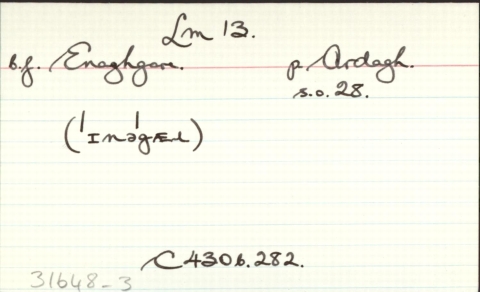 Lm 13.
b.f. Enaghgare. p. Ardagh.
s.o. 28.
(ˈɪnəˈgɶɹ)
C 430 b. 282.
31648-3